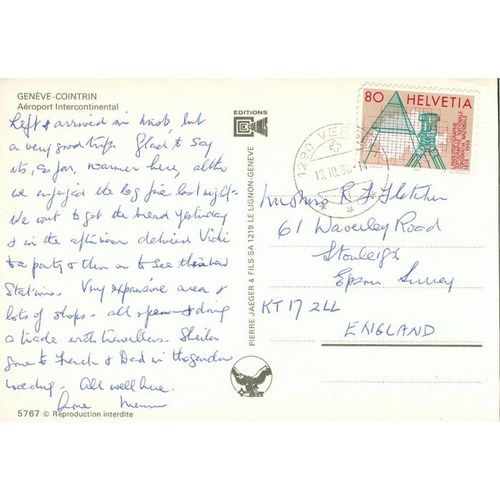 GENÈVE-COINTRIN
Aéroport Intercontinental
Left & arrived in mist, but
a very good trip. Glad to say
its, so far, warmer here, altho
we enjoyed the log fire last night.
We went to get the bread yesterday
& in the afternoon delivered Vicki
to a party & then on to see the new
Station. Very expansive area &
lots of shops - all open & doing
a trade with travellers. Sheila
gone to French & Dad in the garden
weeding. All well here.
Love
5767 © Reproduction interdite
EDITIONS
PIERRE JAEGER & FILS SA 1219 LE LIGNON-GENEVE
1290
80 HELVETIA
Mr & Mrs R J Fletcher
61 Waverley Road
Stoneleigh
Epsom Surrey
KT17 2LL
ENGLAND